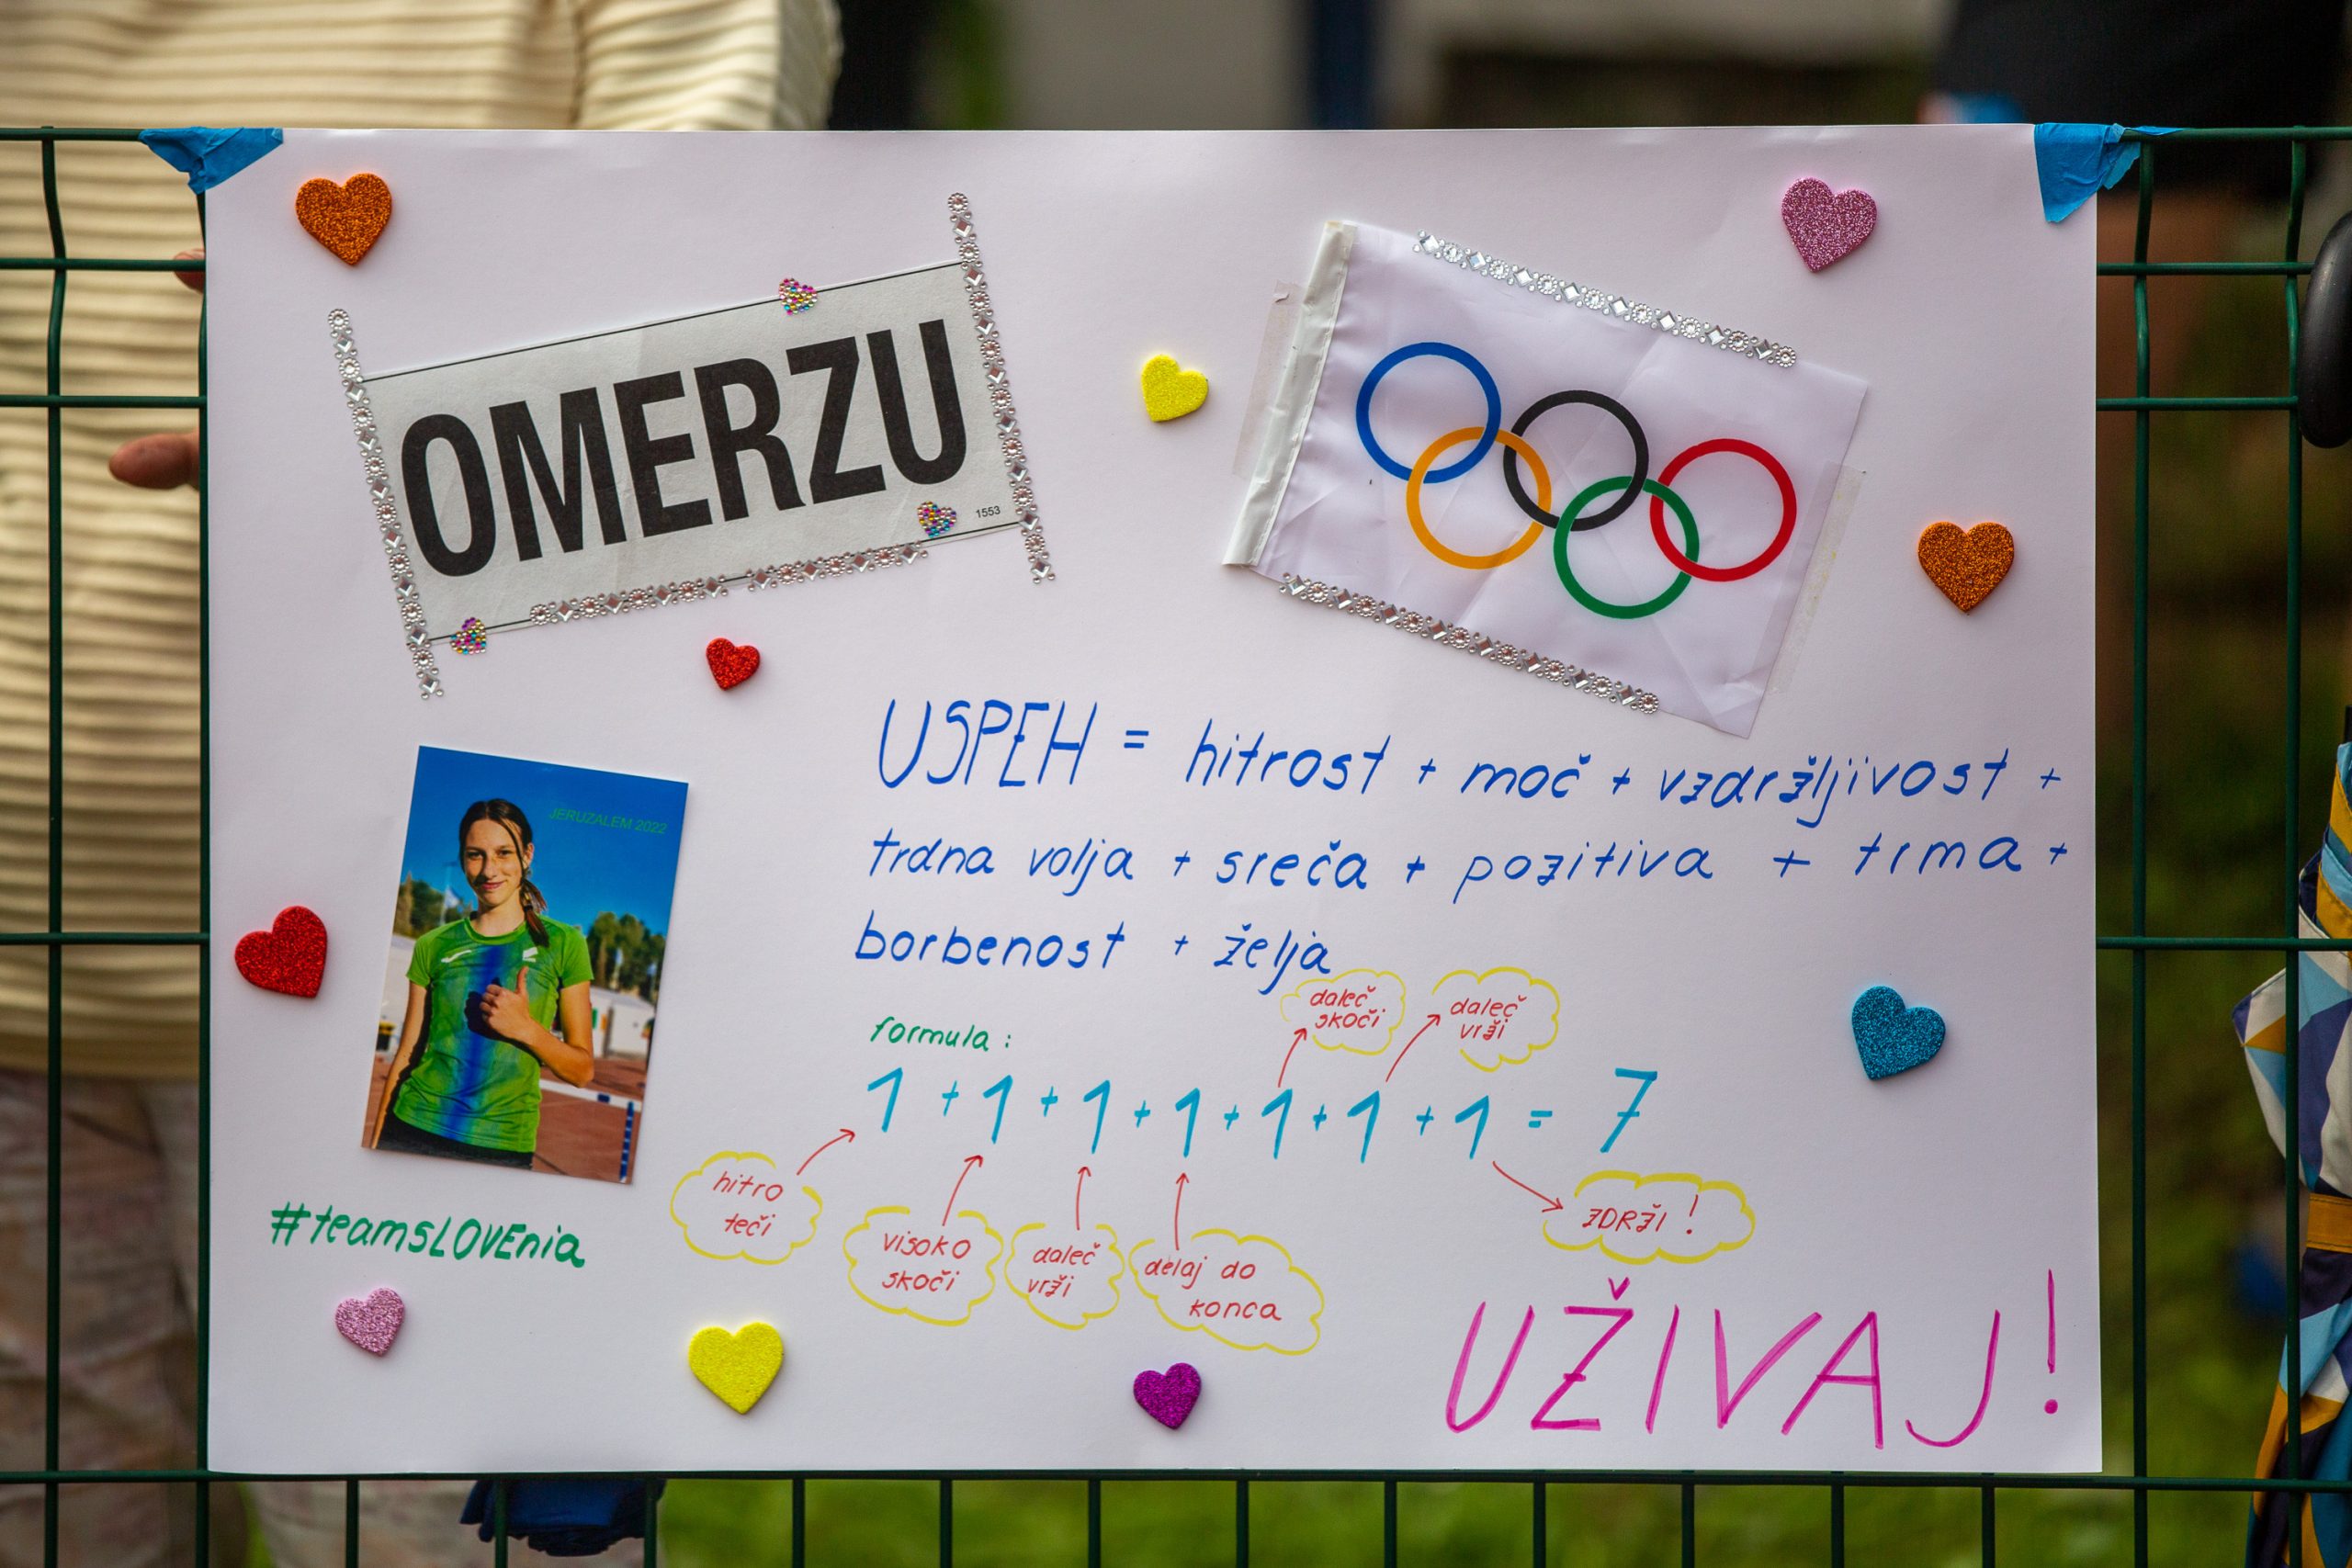 OMERZU
1553
USPEH = hitrost + moč + vzdržljivost +
trdna volja + sreča + pozitiva + trma +
borbenost + želja
JERUZALEM 2022
daleč
skoči
daleč
vrži
formula:
1 + 1 + 1 + 1 + 1 + 1 + 1 = 7
hitro
teči
visoko
skoči
daleč
vrži
delaj do
konca
ZDRŽI!
#teamsLOVEnia
UŽIVAJ!